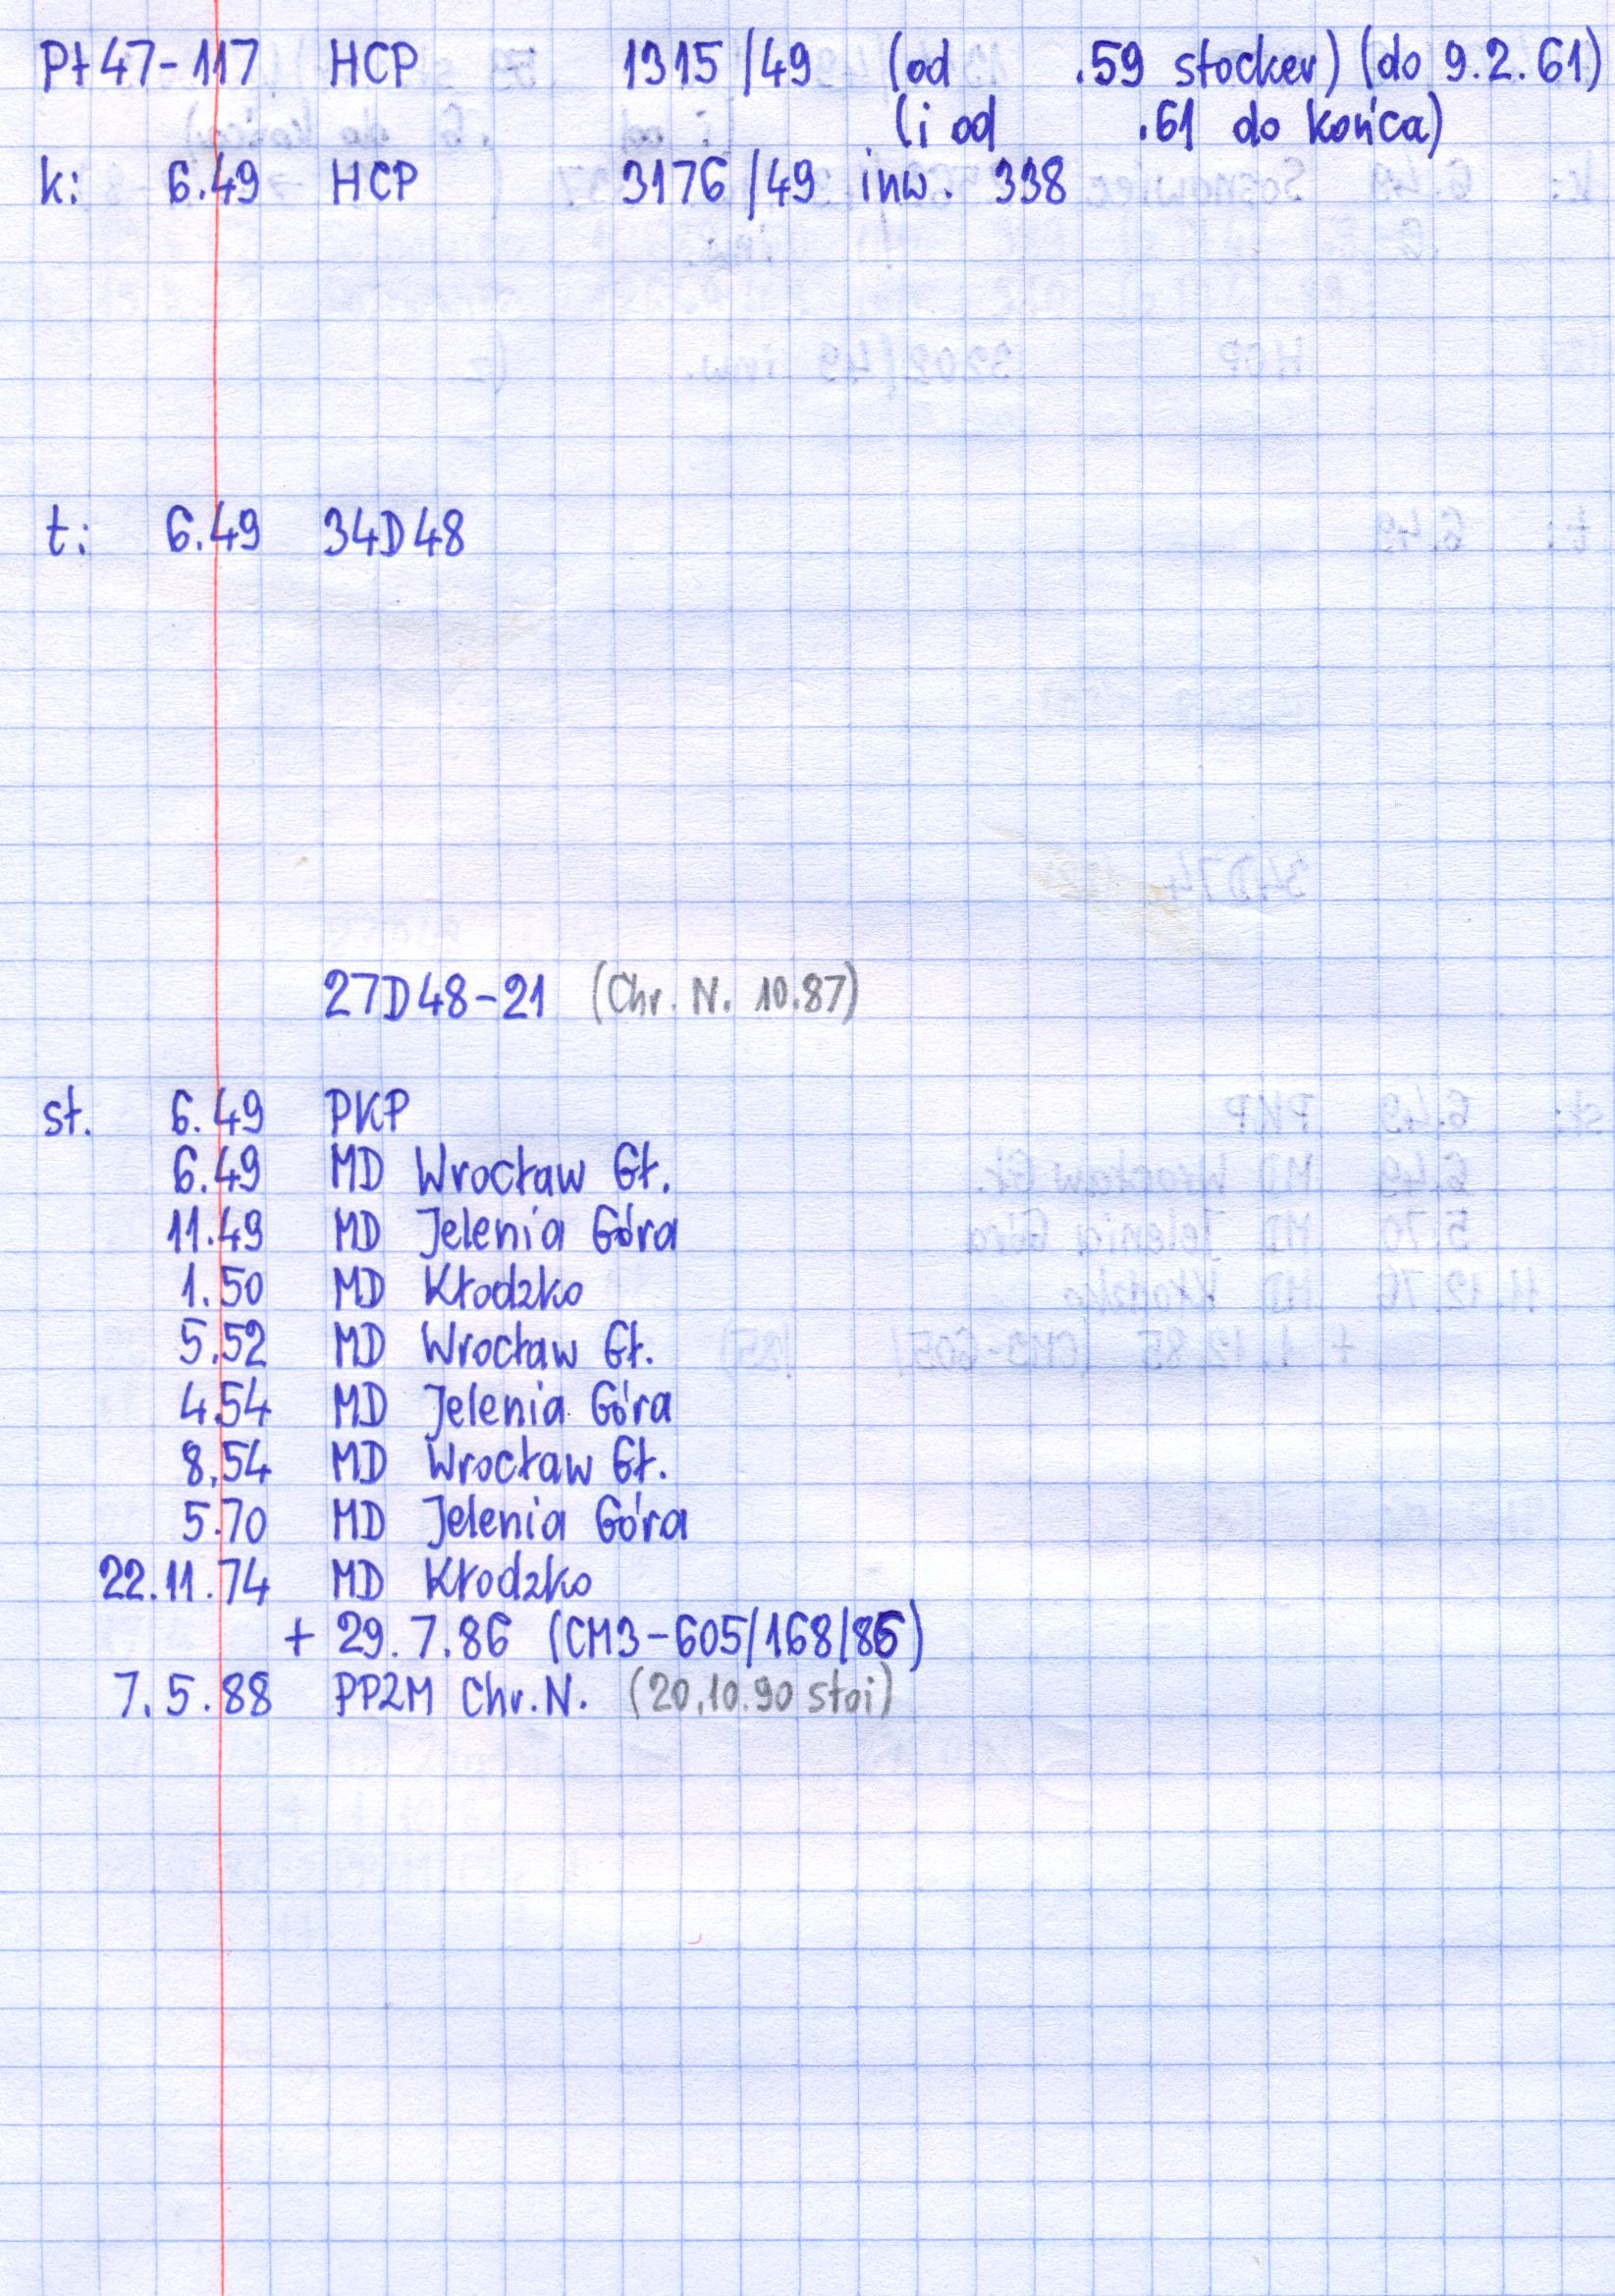 Pt47-117 HCP 1315/49 (od .59 stocker) (do 9.2.61)
(i od .61 do końca)
k: 6.49 HCP 3176/49 inw. 338
t: 6.49 34D48
27D48-21 (Chr. N. 10.87)
st. 6.49 PKP
6.49 MD Wrocław Gł.
11.49 MD Jelenia Góra
1.50 MD Kłodzko
5.52 MD Wrocław Gł.
4.54 MD Jelenia Góra
8.54 MD Wrocław Gł.
5.70 MD Jelenia Góra
22.11.74 MD Kłodzko
+ 29.7.86 (CM3-605/168/86)
7.5.88 PPZM Chr.N. (20.10.90 stoi)